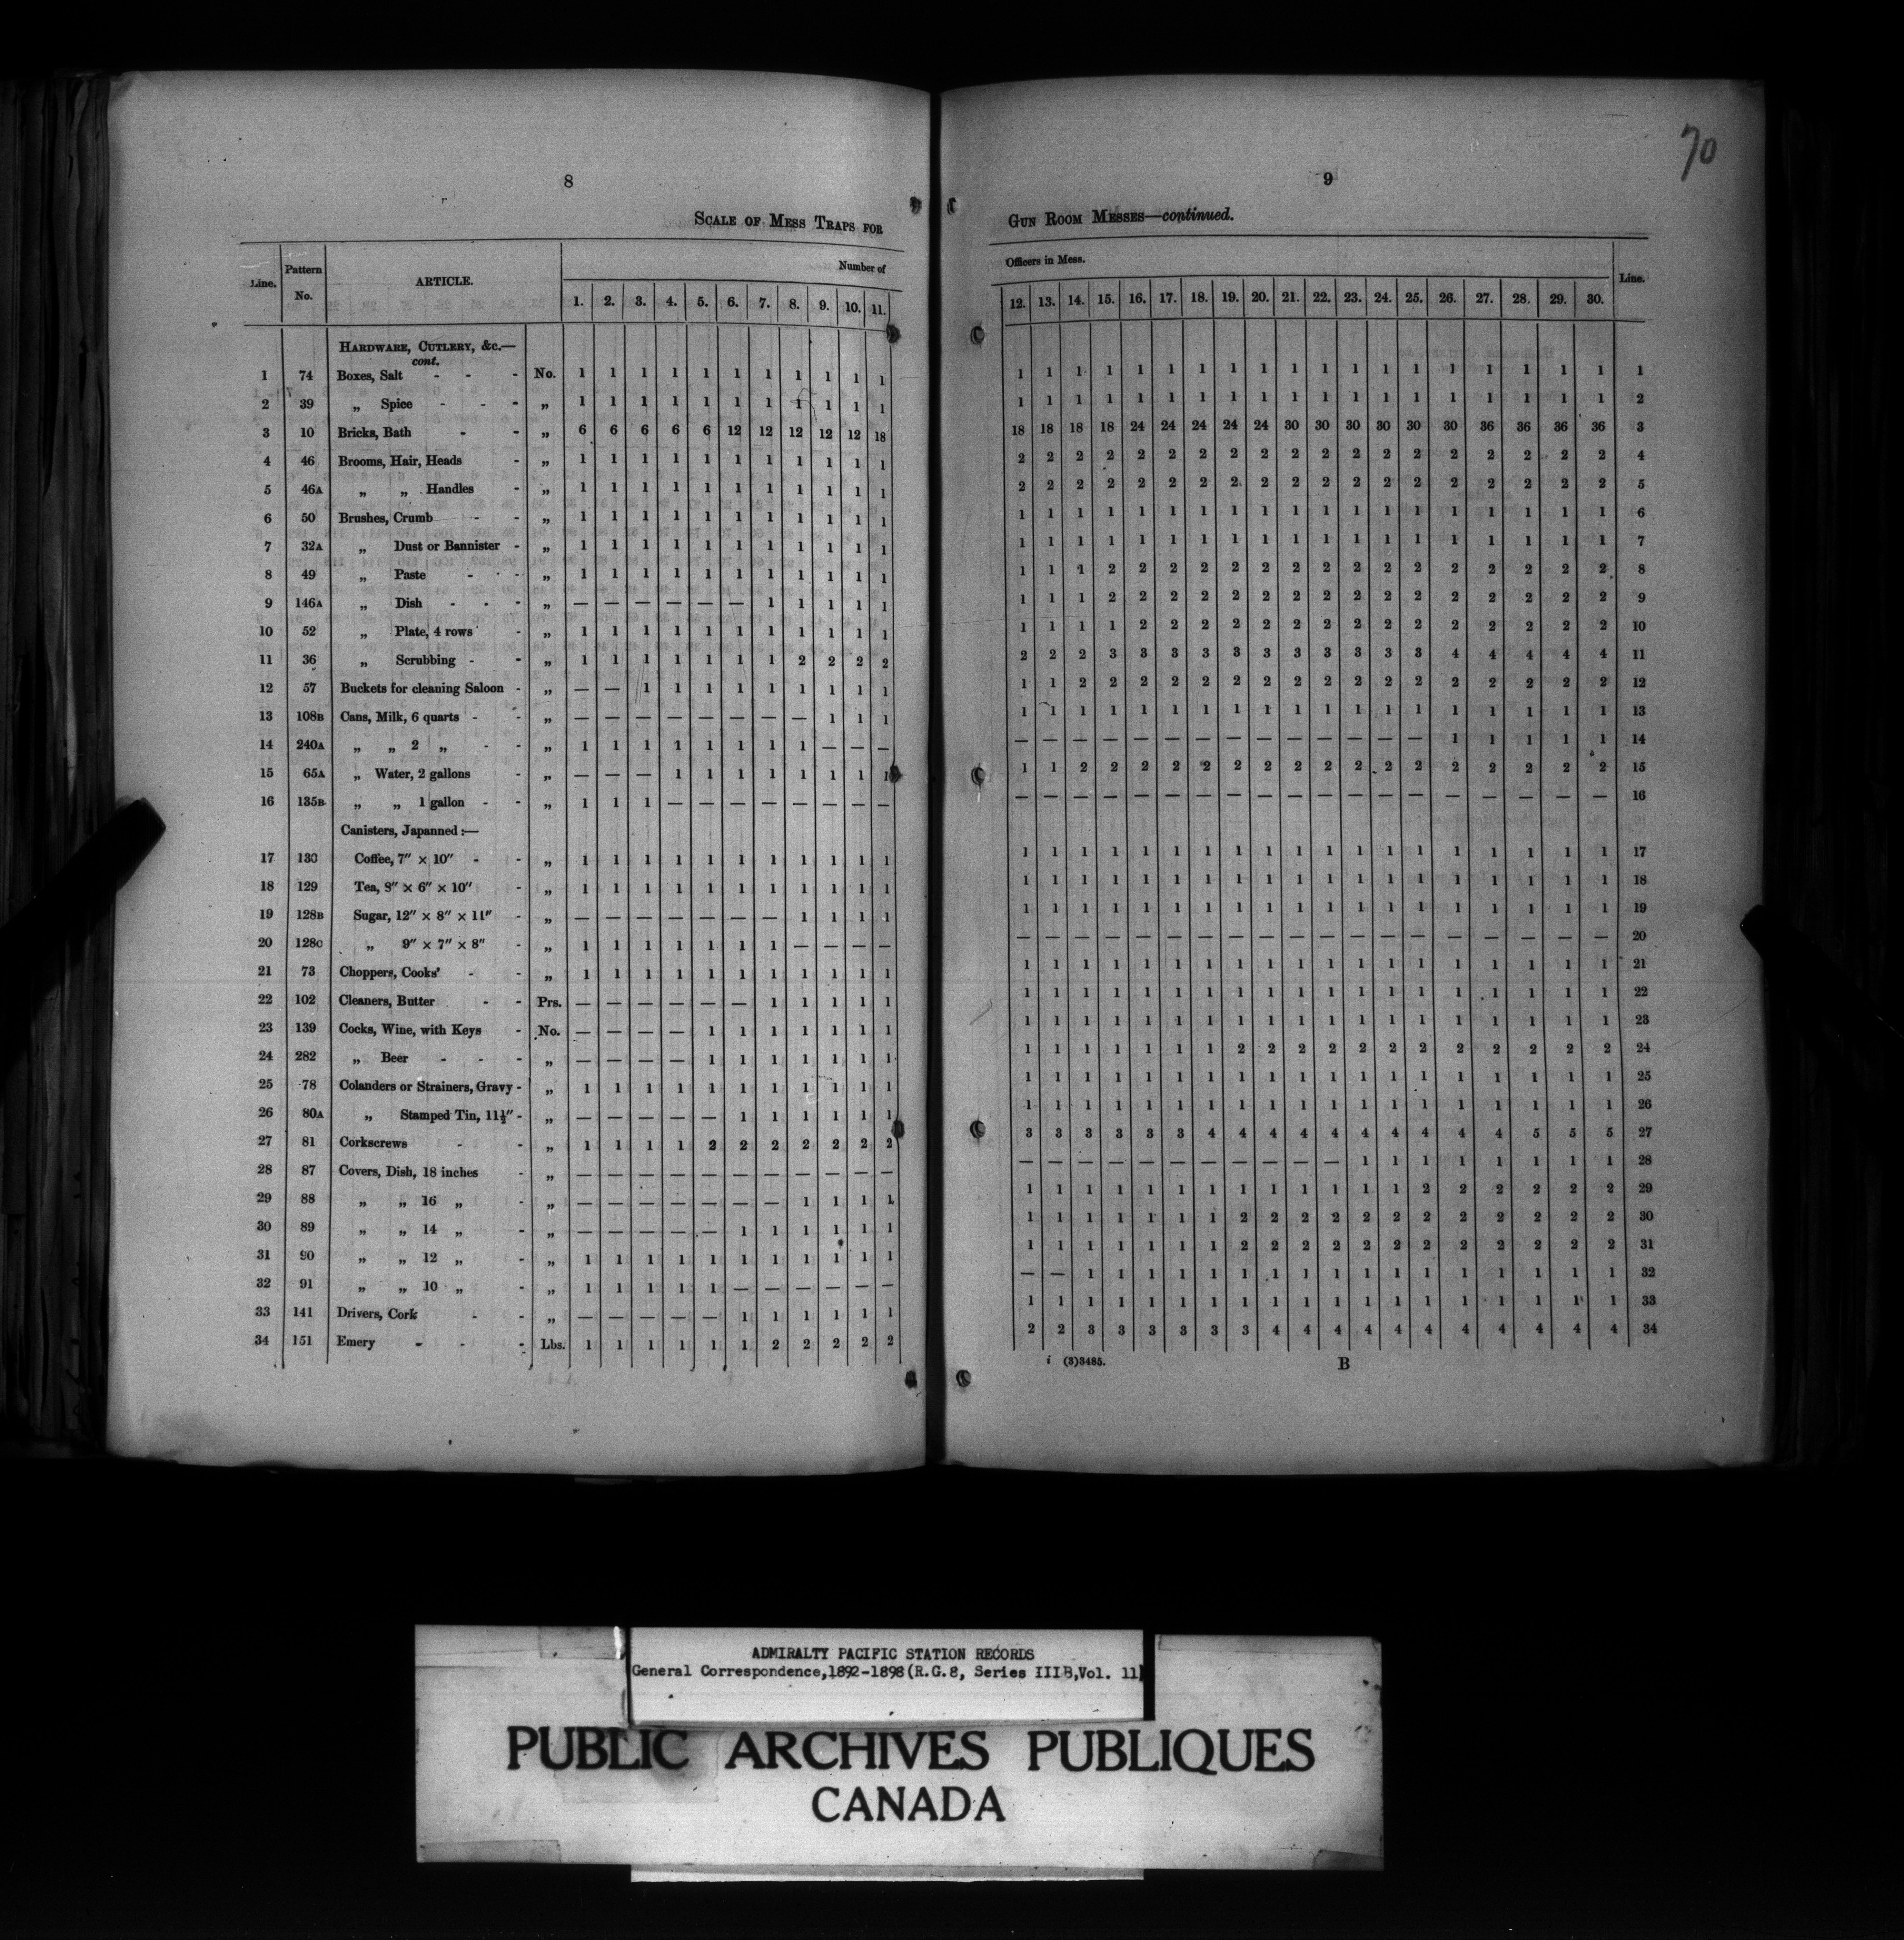 8
SCALE OF MESS TRAPS FOR
Line. Pattern No. ARTICLE. Number of
1. 2. 3. 4. 5. 6. 7. 8. 9. 10. 11.
HARDWARE, CUTLERY, &c.—
cont.
1 74 Boxes, Salt - - - No. 1 1 1 1 1 1 1 1 1 1 1
2 39 „ Spice - - - „ 1 1 1 1 1 1 1 1 1 1 1
3 10 Bricks, Bath - - „ 6 6 6 6 6 12 12 12 12 12 18
4 46 Brooms, Hair, Heads - „ 1 1 1 1 1 1 1 1 1 1 1
5 46A „ „ Handles - „ 1 1 1 1 1 1 1 1 1 1 1
6 50 Brushes, Crumb - - „ 1 1 1 1 1 1 1 1 1 1 1
7 32A „ Dust or Bannister - „ 1 1 1 1 1 1 1 1 1 1 1
8 49 „ Paste - - - „ 1 1 1 1 1 1 1 1 1 1 1
9 146A „ Dish - - - „ — — — — — — 1 1 1 1 1
10 52 „ Plate, 4 rows - „ 1 1 1 1 1 1 1 1 1 1 1
11 36 „ Scrubbing - - „ 1 1 1 1 1 1 1 2 2 2 2
12 57 Buckets for cleaning Saloon - „ — — 1 1 1 1 1 1 1 1 1
13 108B Cans, Milk, 6 quarts - - „ — — — — — — — — 1 1 1
14 240A „ „ 2 „ - - „ 1 1 1 1 1 1 1 1 — — —
15 65A „ Water, 2 gallons - „ — — — 1 1 1 1 1 1 1 1
16 135B „ „ 1 gallon - - „ 1 1 1 — — — — — — — —
Canisters, Japanned :—
17 130 Coffee, 7″ × 10″ - - „ 1 1 1 1 1 1 1 1 1 1 1
18 129 Tea, 8″ × 6″ × 10″ - „ 1 1 1 1 1 1 1 1 1 1 1
19 128B Sugar, 12″ × 8″ × 11″ - „ — — — — — — — 1 1 1 1
20 128C „ 9″ × 7″ × 8″ - „ 1 1 1 1 1 1 1 — — — —
21 73 Choppers, Cooks' - - „ 1 1 1 1 1 1 1 1 1 1 1
22 102 Cleaners, Butter - - Prs. — — — — — — 1 1 1 1 1
23 139 Cocks, Wine, with Keys - No. — — — — 1 1 1 1 1 1 1
24 282 „ Beer - - - „ — — — — 1 1 1 1 1 1 1
25 78 Colanders or Strainers, Gravy - „ 1 1 1 1 1 1 1 1 1 1 1
26 80A „ Stamped Tin, 11½″ - „ — — — — — 1 1 1 1 1 1
27 81 Corkscrews - - „ 1 1 1 1 2 2 2 2 2 2 2
28 87 Covers, Dish, 18 inches - „ — — — — — — — — — — —
29 88 „ „ 16 „ - „ — — — — — — — 1 1 1 1
30 89 „ „ 14 „ - „ — — — — — 1 1 1 1 1 1
31 90 „ „ 12 „ - „ 1 1 1 1 1 1 1 1 1 1 1
32 91 „ „ 10 „ - „ 1 1 1 1 1 — — — — — —
33 141 Drivers, Cork - - „ — — — — — 1 1 1 1 1 1
34 151 Emery - - - Lbs. 1 1 1 1 1 1 2 2 2 2 2
70
9
GUN ROOM MESSES—continued.
Officers in Mess. Line.
12. 13. 14. 15. 16. 17. 18. 19. 20. 21. 22. 23. 24. 25. 26. 27. 28. 29. 30.
1 1 1 1 1 1 1 1 1 1 1 1 1 1 1 1 1 1 1 1
1 1 1 1 1 1 1 1 1 1 1 1 1 1 1 1 1 1 1 2
18 18 18 18 24 24 24 24 24 30 30 30 30 30 30 36 36 36 36 3
2 2 2 2 2 2 2 2 2 2 2 2 2 2 2 2 2 2 2 4
2 2 2 2 2 2 2 2 2 2 2 2 2 2 2 2 2 2 2 5
1 1 1 1 1 1 1 1 1 1 1 1 1 1 1 1 1 1 1 6
1 1 1 1 1 1 1 1 1 1 1 1 1 1 1 1 1 1 1 7
1 1 1 2 2 2 2 2 2 2 2 2 2 2 2 2 2 2 2 8
1 1 1 2 2 2 2 2 2 2 2 2 2 2 2 2 2 2 2 9
1 1 1 1 2 2 2 2 2 2 2 2 2 2 2 2 2 2 2 10
2 2 2 3 3 3 3 3 3 3 3 3 3 3 4 4 4 4 4 11
1 1 2 2 2 2 2 2 2 2 2 2 2 2 2 2 2 2 2 12
1 1 1 1 1 1 1 1 1 1 1 1 1 1 1 1 1 1 1 13
— — — — — — — — — — — — — — 1 1 1 1 1 14
1 1 2 2 2 2 2 2 2 2 2 2 2 2 2 2 2 2 2 15
— — — — — — — — — — — — — — — — — — — 16
1 1 1 1 1 1 1 1 1 1 1 1 1 1 1 1 1 1 1 17
1 1 1 1 1 1 1 1 1 1 1 1 1 1 1 1 1 1 1 18
1 1 1 1 1 1 1 1 1 1 1 1 1 1 1 1 1 1 1 19
— — — — — — — — — — — — — — — — — — — 20
1 1 1 1 1 1 1 1 1 1 1 1 1 1 1 1 1 1 1 21
1 1 1 1 1 1 1 1 1 1 1 1 1 1 1 1 1 1 1 22
1 1 1 1 1 1 1 1 1 1 1 1 1 1 1 1 1 1 1 23
1 1 1 1 1 1 1 2 2 2 2 2 2 2 2 2 2 2 2 24
1 1 1 1 1 1 1 1 1 1 1 1 1 1 1 1 1 1 1 25
1 1 1 1 1 1 1 1 1 1 1 1 1 1 1 1 1 1 1 26
3 3 3 3 3 3 4 4 4 4 4 4 4 4 4 4 5 5 5 27
— — — — — — — — — — — 1 1 1 1 1 1 1 1 28
1 1 1 1 1 1 1 1 1 1 1 1 1 2 2 2 2 2 2 29
1 1 1 1 1 1 1 2 2 2 2 2 2 2 2 2 2 2 2 30
1 1 1 1 1 1 1 2 2 2 2 2 2 2 2 2 2 2 2 31
— — 1 1 1 1 1 1 1 1 1 1 1 1 1 1 1 1 1 32
1 1 1 1 1 1 1 1 1 1 1 1 1 1 1 1 1 1 1 33
2 2 3 3 3 3 3 3 4 4 4 4 4 4 4 4 4 4 4 34
i (3)3485. B
ADMIRALTY PACIFIC STATION RECORDS
General Correspondence,1892-1898(R.G.8, Series IIIB,Vol. 11)
PUBLIC ARCHIVES PUBLIQUES
CANADA